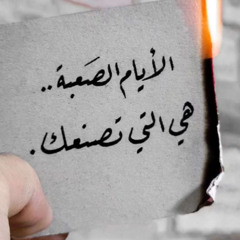 الأيام الصَعبة..
هي التي تصنعك.